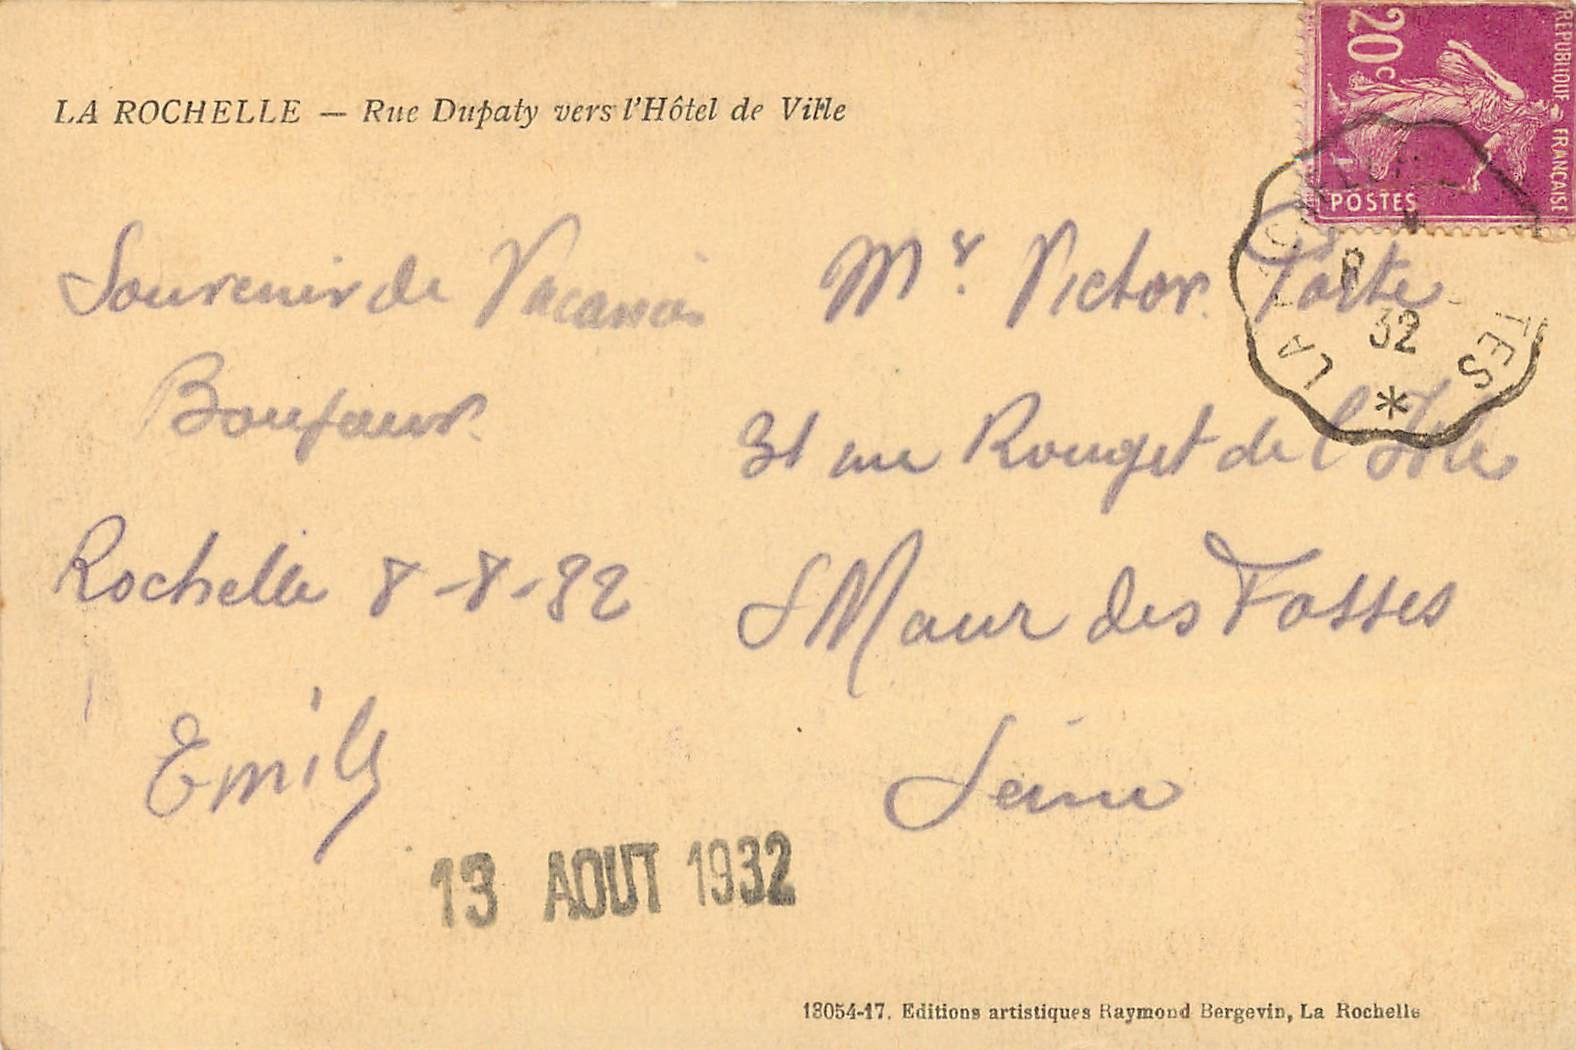 LA ROCHELLE — Rue Dupaty vers l'Hôtel de Ville
20c
REPUBLIQUE FRANÇAISE
POSTES
LA ROCHELLE
TES
8
32
*
Souvenir de Vacances
Bonjour.
Rochelle 8-8-32
Emile
Mr. Victor Porte
31 rue Rouget de l'Isle
St Maur des Fosses
Seine
13 AOUT 1932
18054-17. Editions artistiques Raymond Bergevin, La Rochelle